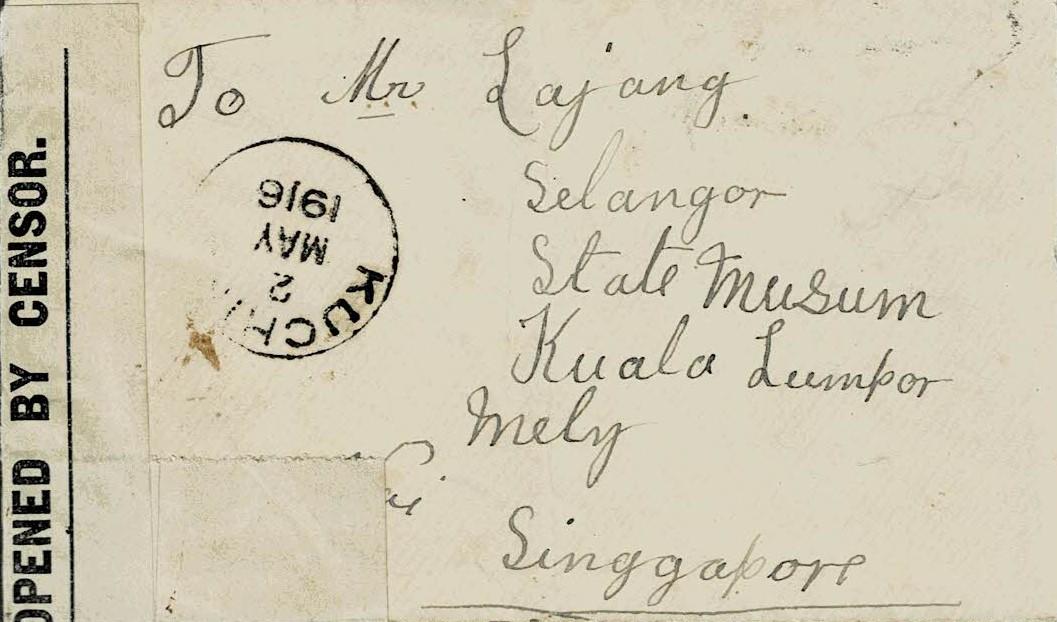 OPENED BY CENSOR.
To Mr Lajang.
Selangor
State Musum
Kuala Lumpor
Mely
Singgapore
KUCHI
2
MAY
1916